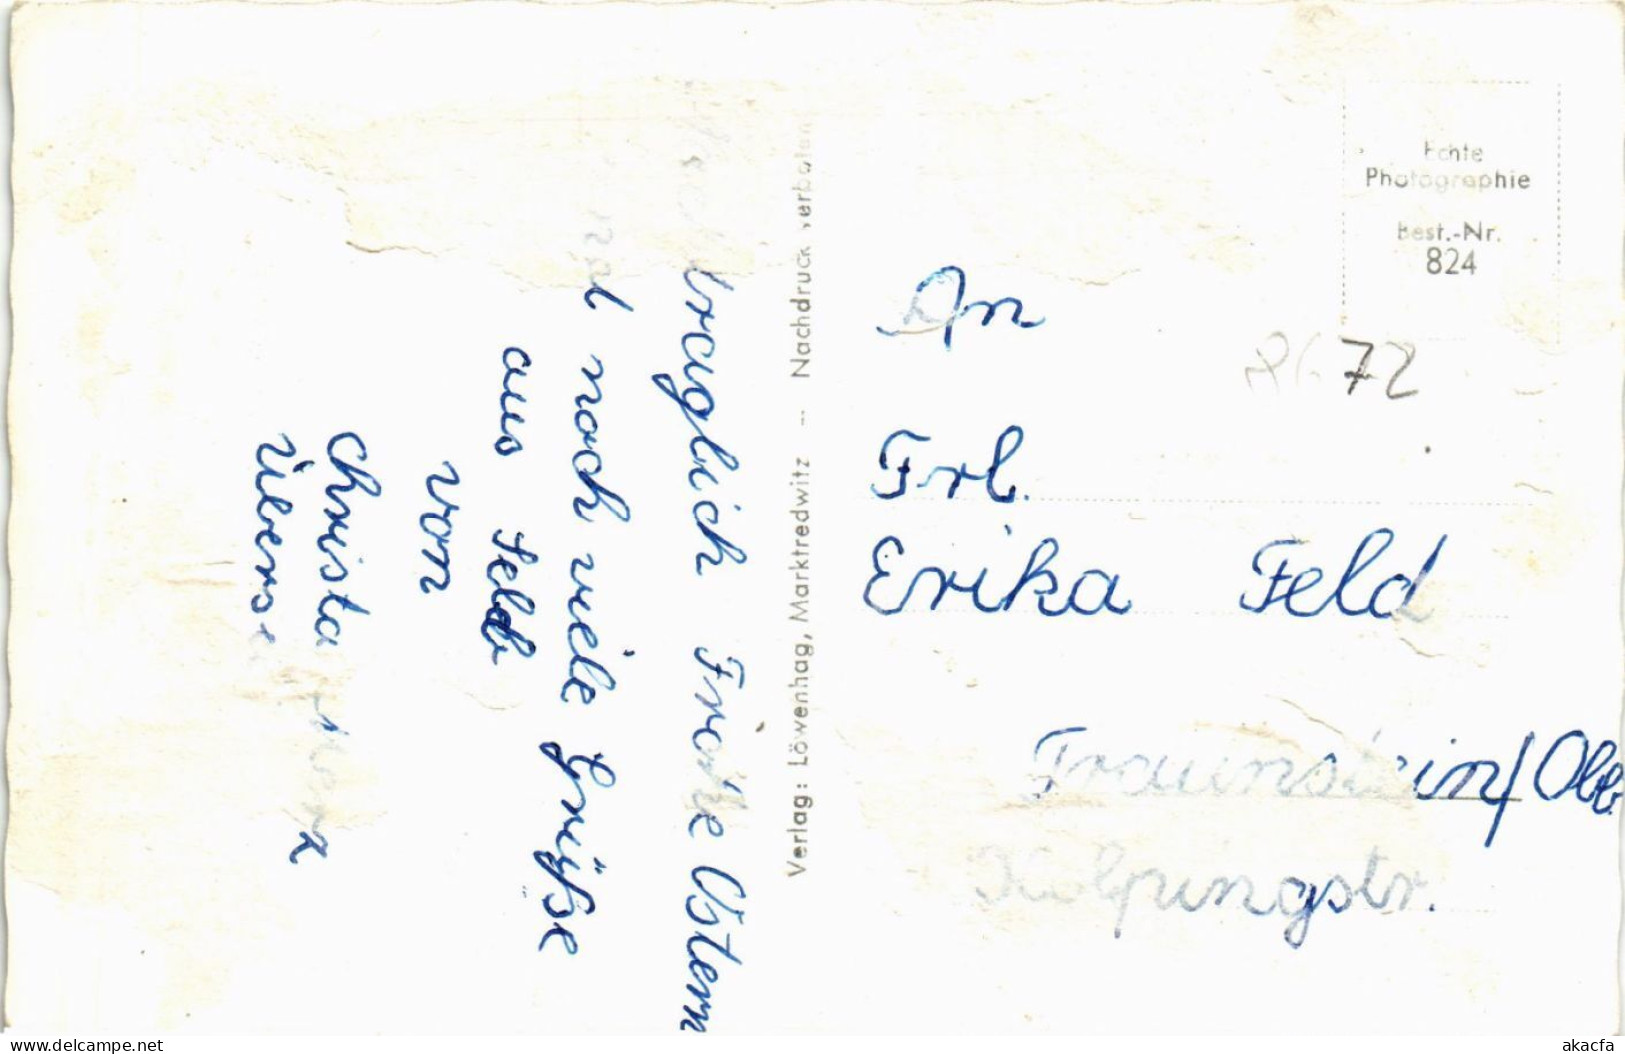 nachtraglich Frohe Ostern
und noch viele Grüße
aus Selb
von
Christa
Verlag: Löwenhag, Marktredwitz -- Nachdruck verboten
Echte
Photographie
Best.-Nr.
824
8672
An
Frl.
Erika Feld
Traunstein/Obb.
Kolpingstr.
www.delcampe.net
akacfa